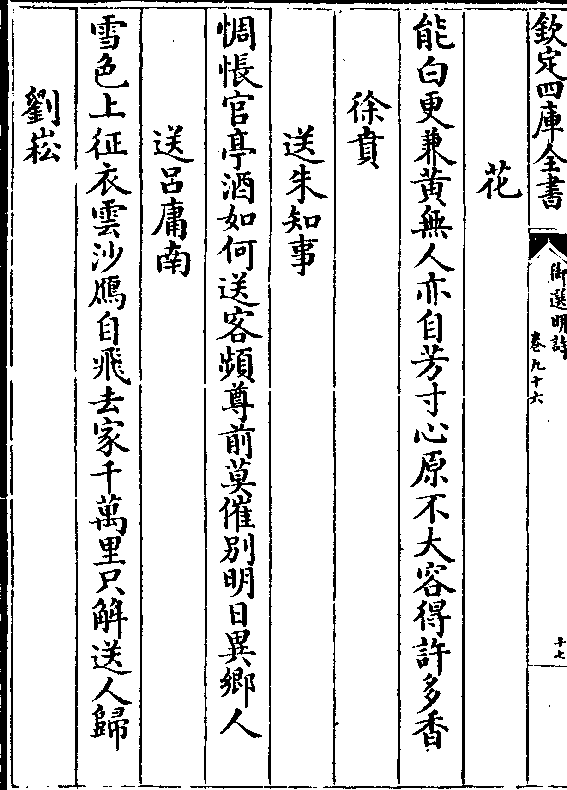 欽定四庫全書
御選明詩
卷九十六
十七
花
能白更兼黄無人亦自芳寸心原不大容得許多香
徐賁
送朱知事
惆悵官亭酒如何送客頻尊前莫催别明日異鄉人
送吕庸南
雪色上征衣雲沙鴈自飛去家千萬里只解送人歸
劉崧